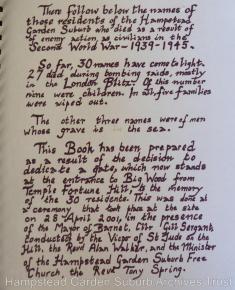 There follow below the names of
those residents of the Hampstead
Garden Suburb who died as a result of
enemy action as civilians in the
Second World War - 1939-1945.
So far, 30 names have come to light.
27 died during bombing raids, mostly
in the London Blitz. Of this number
nine were children. In all, five families
were wiped out.
The other three names were of men
whose grave is in the sea.
This Book has been prepared
as a result of the decision to
dedicate a gate, which now stands
at the entrance to Big Wood from
Temple Fortune Hill, to the memory
of the 30 residents. This was done at
a ceremony that took place at the site
on 28 April 2001, in the presence
of the Mayor of Barnet, Cllr Gill Sargent,
conducted by the Vicar of St Jude on the
Hill, the Revd Alan Walker, and the Minister
of the Hampstead Garden Suburb Free
Church, the Revd Tony Spring.
Hampstead Garden Suburb Archives Trust